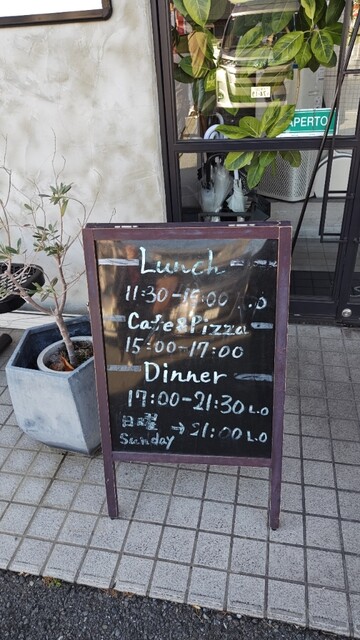 APERTO
Lunch
11:30-15:00 L.O
Cafe&Pizza
15:00-17:00
Dinner
17:00-21:30 L.O
日曜 → 21:00 L.O
Sunday